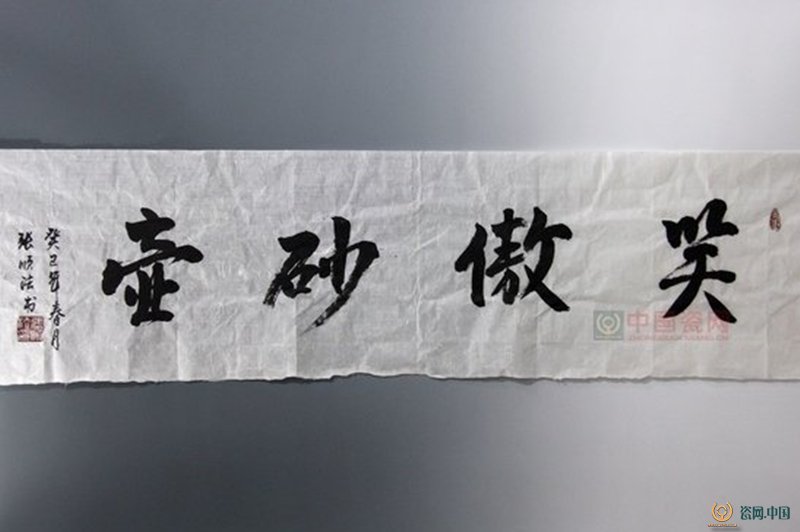 笑傲砂壶
癸巳年春月
张顺法书
中国瓷网
瓷网.中国